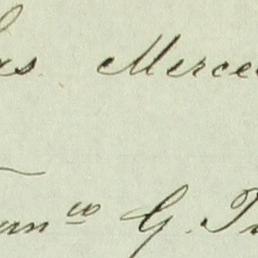 as Merce
an^co G. Tr